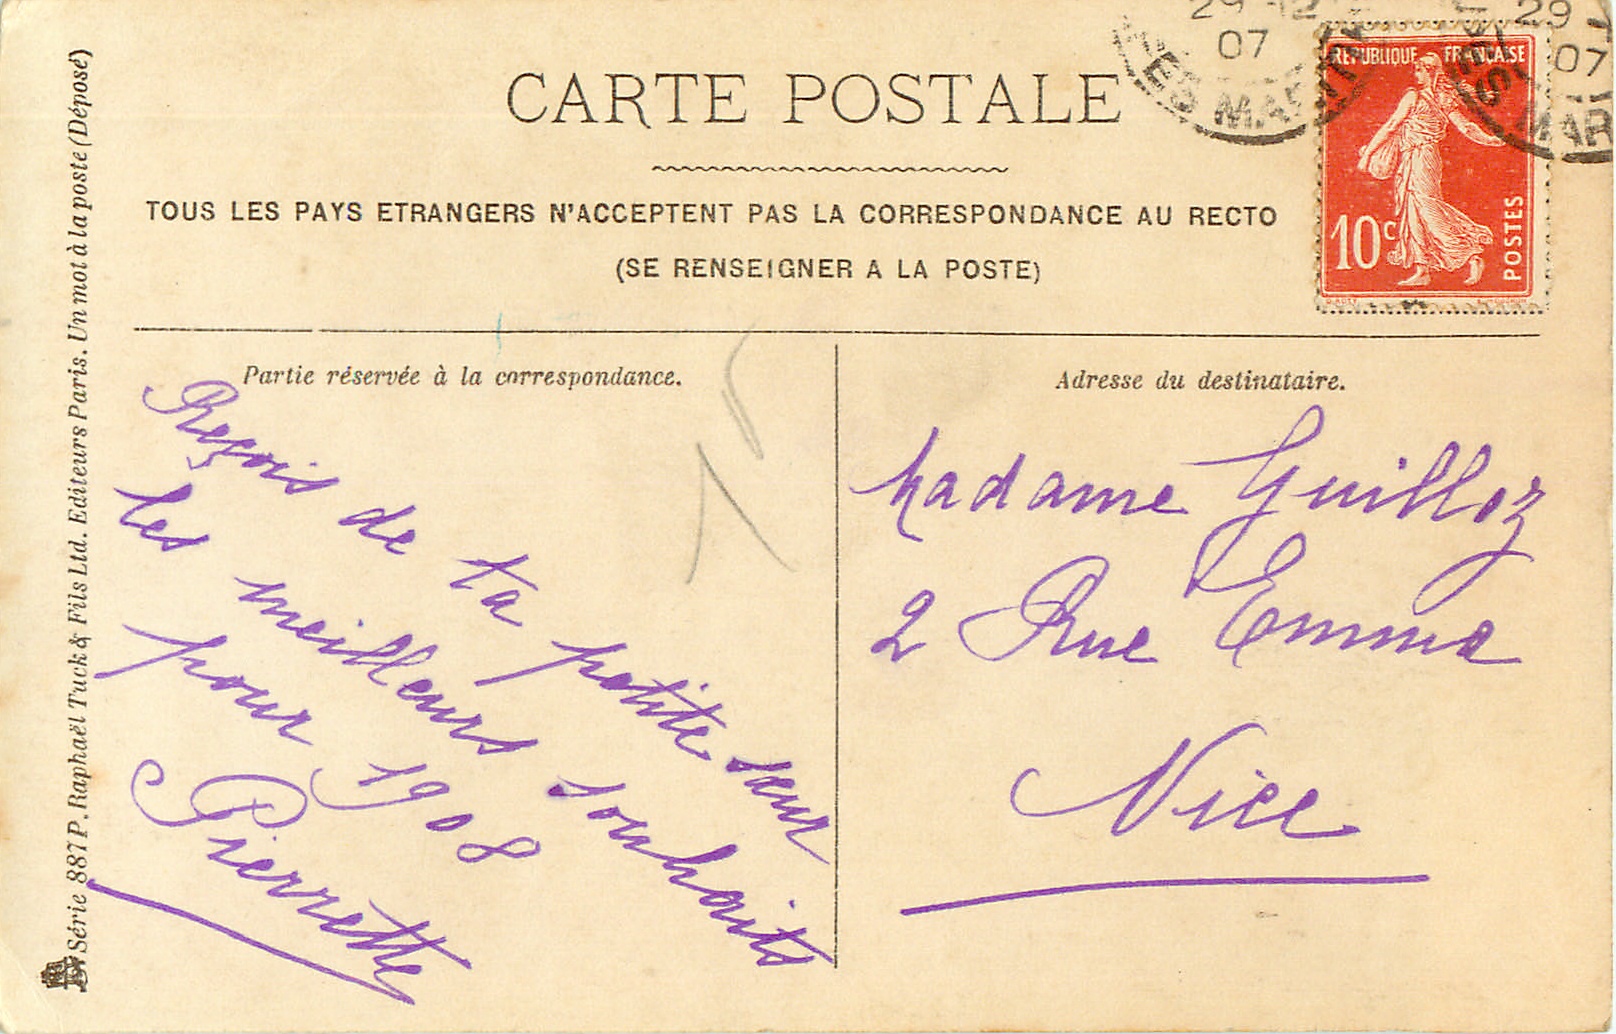 29 12
07
ES MAR
29
07
MAR
CARTE POSTALE
REPUBLIQUE FRANÇAISE
10c
POSTES
TOUS LES PAYS ETRANGERS N'ACCEPTENT PAS LA CORRESPONDANCE AU RECTO
(SE RENSEIGNER A LA POSTE)
Partie réservée à la correspondance.
Reçois de ta petite sœur
les meilleurs souhaits
pour 1908
Pierrette
Adresse du destinataire.
Madame Guilloz
2 Rue Emma
Nice
Série 887 P. Raphaël Tuck & Fils Ltd. Editeurs Paris. Un mot à la poste (Déposé)